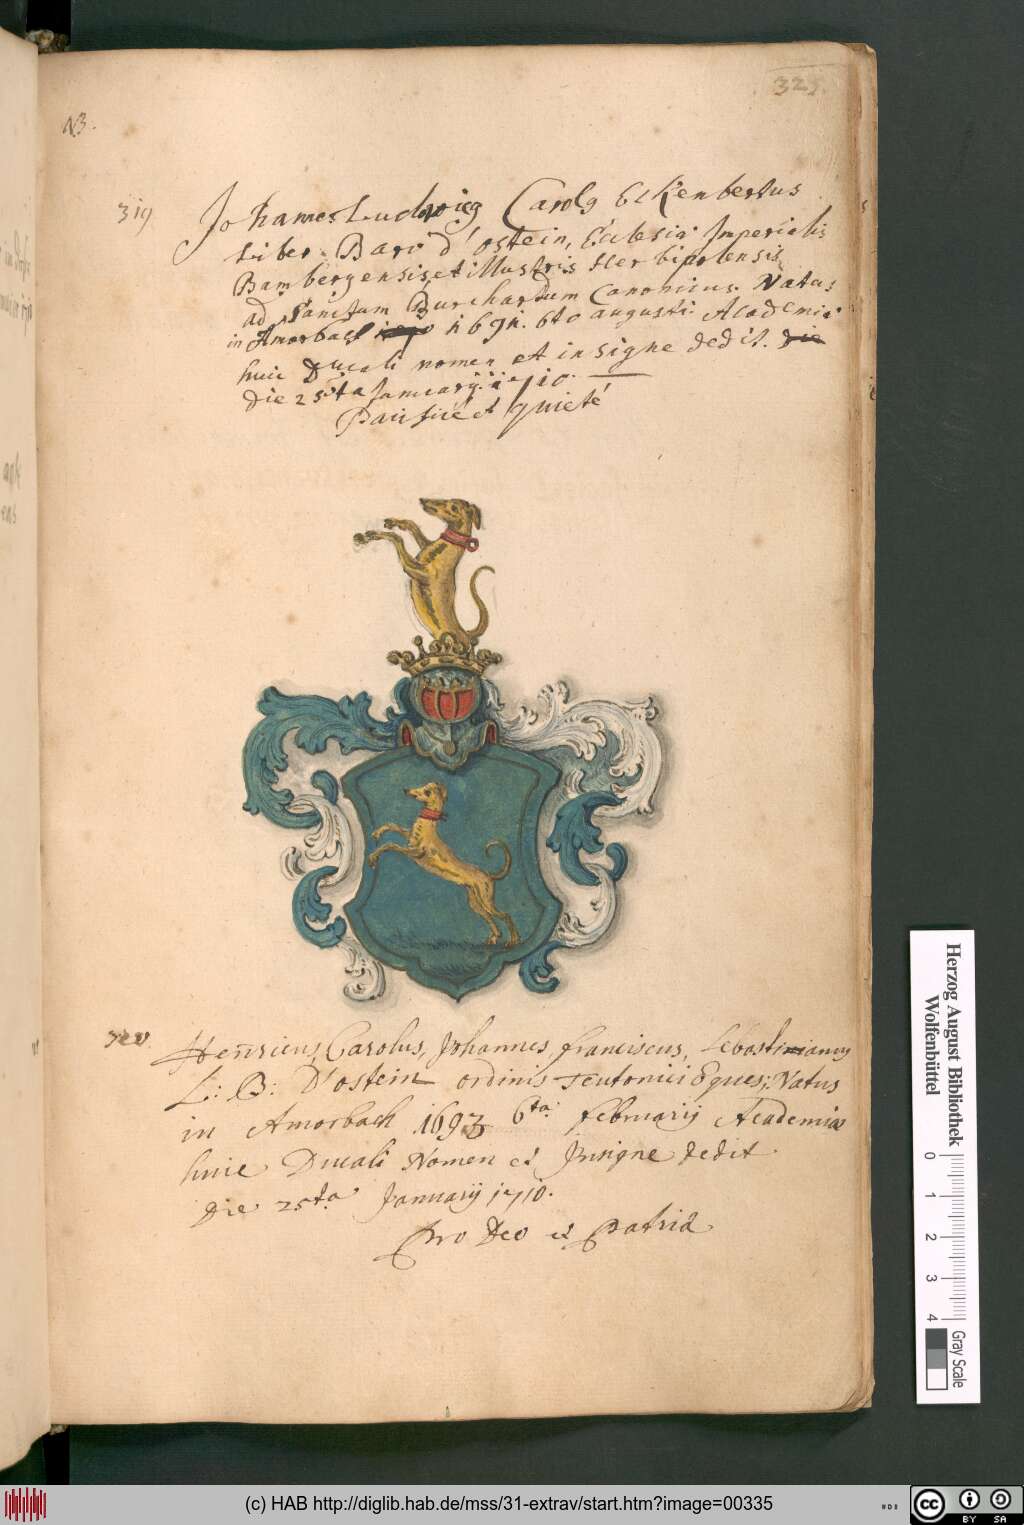 325.
N3.
319
Johannes Ludwieg Carolg Eckenbertus
Liber Baro d'ostein, Ecclesia Imperialis
Bambergensis et illustris Herbipolensis
ad Sanctum Burchardum Canonicus. Natus
in Amorbach 1691. 6to augusti. Academia
huic Ducali nomen et insigne dedit. die
die 25ta Januarij. 1710.
Pacificè et quietè
320
Henricus, Carolus, Johannes, franciscus, Sebastianus
L: B: D'ostein ordinis Teutonici Eques; Natus
in Amorbach 1693 6ta februarij Academiæ
huic Ducali Nomen et Insigne dedit.
Die 25ta Januarij 1710.
Pro Deo et Patriâ
Herzog August Bibliothek
Wolfenbüttel
0 1 2 3 4
Gray Scale
(c) HAB http://diglib.hab.de/mss/31-extrav/start.htm?image=00335
cc BY SA